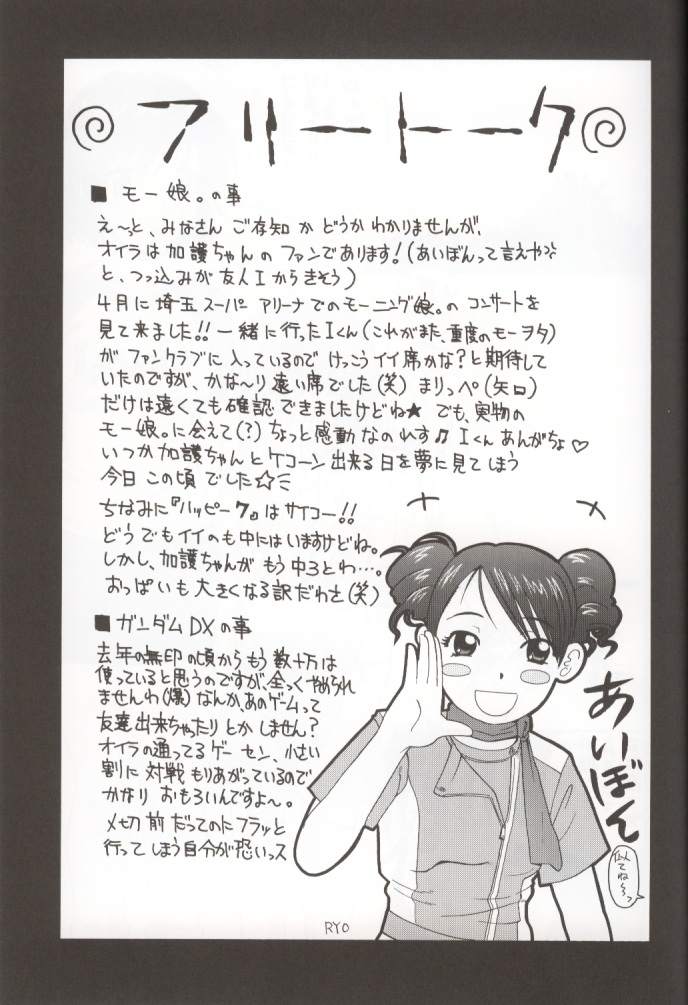 フリートーク
■ モー娘。の事
え〜っと、みなさん ご存知 か どうか わかりませんが、
オイラは 加護ちゃん の ファンであります!(あいぼんって 言えや
と、つっ込みが 友人 I から きそう)
4月に 埼玉 スーパー アリーナ での モーニング娘。の コンサートを
見て来ました!! 一緒に行った Iくん(これがまた、重度のモーヲタ)
が ファンクラブに 入っているので けっこう イイ 席かな?と 期待して
いたのですが、かな〜り 遠い 席 でした(笑) まりっぺ(矢口)
だけは 遠くても 確認 できましたけどね★ でも、実物の
モー娘。に会えて(?) ちょっと感動 なのれす♫ Iくん あんがちょ♡
いつか 加護ちゃんと ケコーン 出来る 日を 夢に 見て しまう
今日 この頃 でした☆ミ
ちなみに『ハッピー7』は サイコー!!
どうでもイイのも 中には いますけどね。
しかし、加護ちゃんが もう 中3とわ…。
おっぱいも 大きくなる 訳だわさ(笑)
■ ガンダムDXの事
去年の無印の頃から もう 数十万は
使っていると 思うのですが、全っく やめられ
ませんわ(爆) なんか、あのゲームって
友達 出来ちゃったり とか しません?
オイラの 通ってる ゲーセン、小さい
割に 対戦 もりあがっているので
かなり おもろいんですよ〜。
〆切 前 だってのに フラッと
行って しまう 自分が 恐いっス
あいぼん
似てね〜っ
RYO